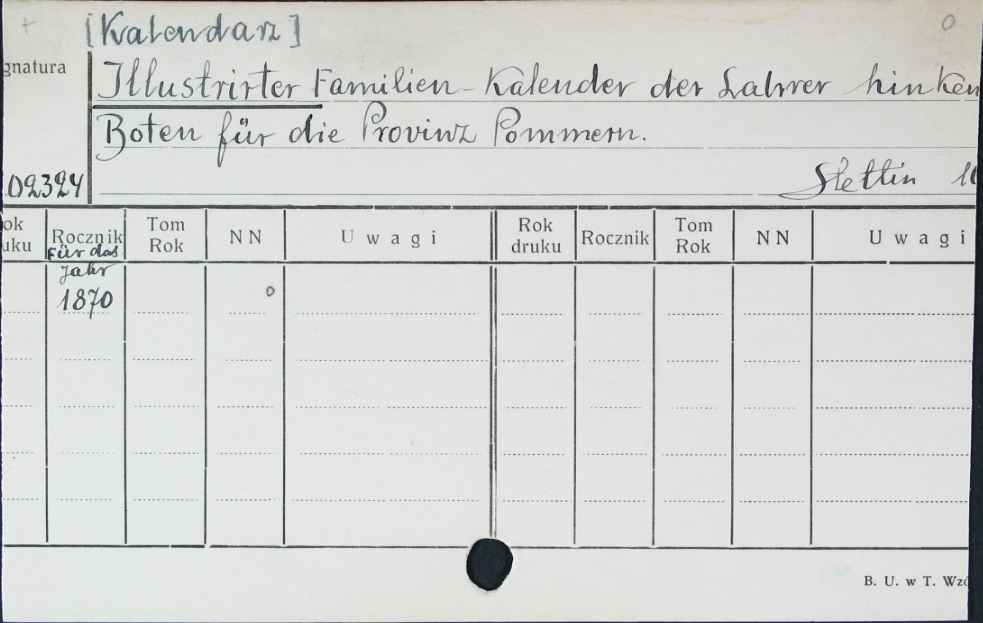 [Kalendarz]
gnatura
Illustrirter Familien-Kalender der Lahrer hinken
Boten für die Provinz Pommern.
02324
Stettin
ok
uku
Rocznik
Tom
Rok
NN
Uwagi
Rok
druku
Rocznik
Tom
Rok
NN
Uwagi
für das
Jahr
1870
B. U. w T. Wzó